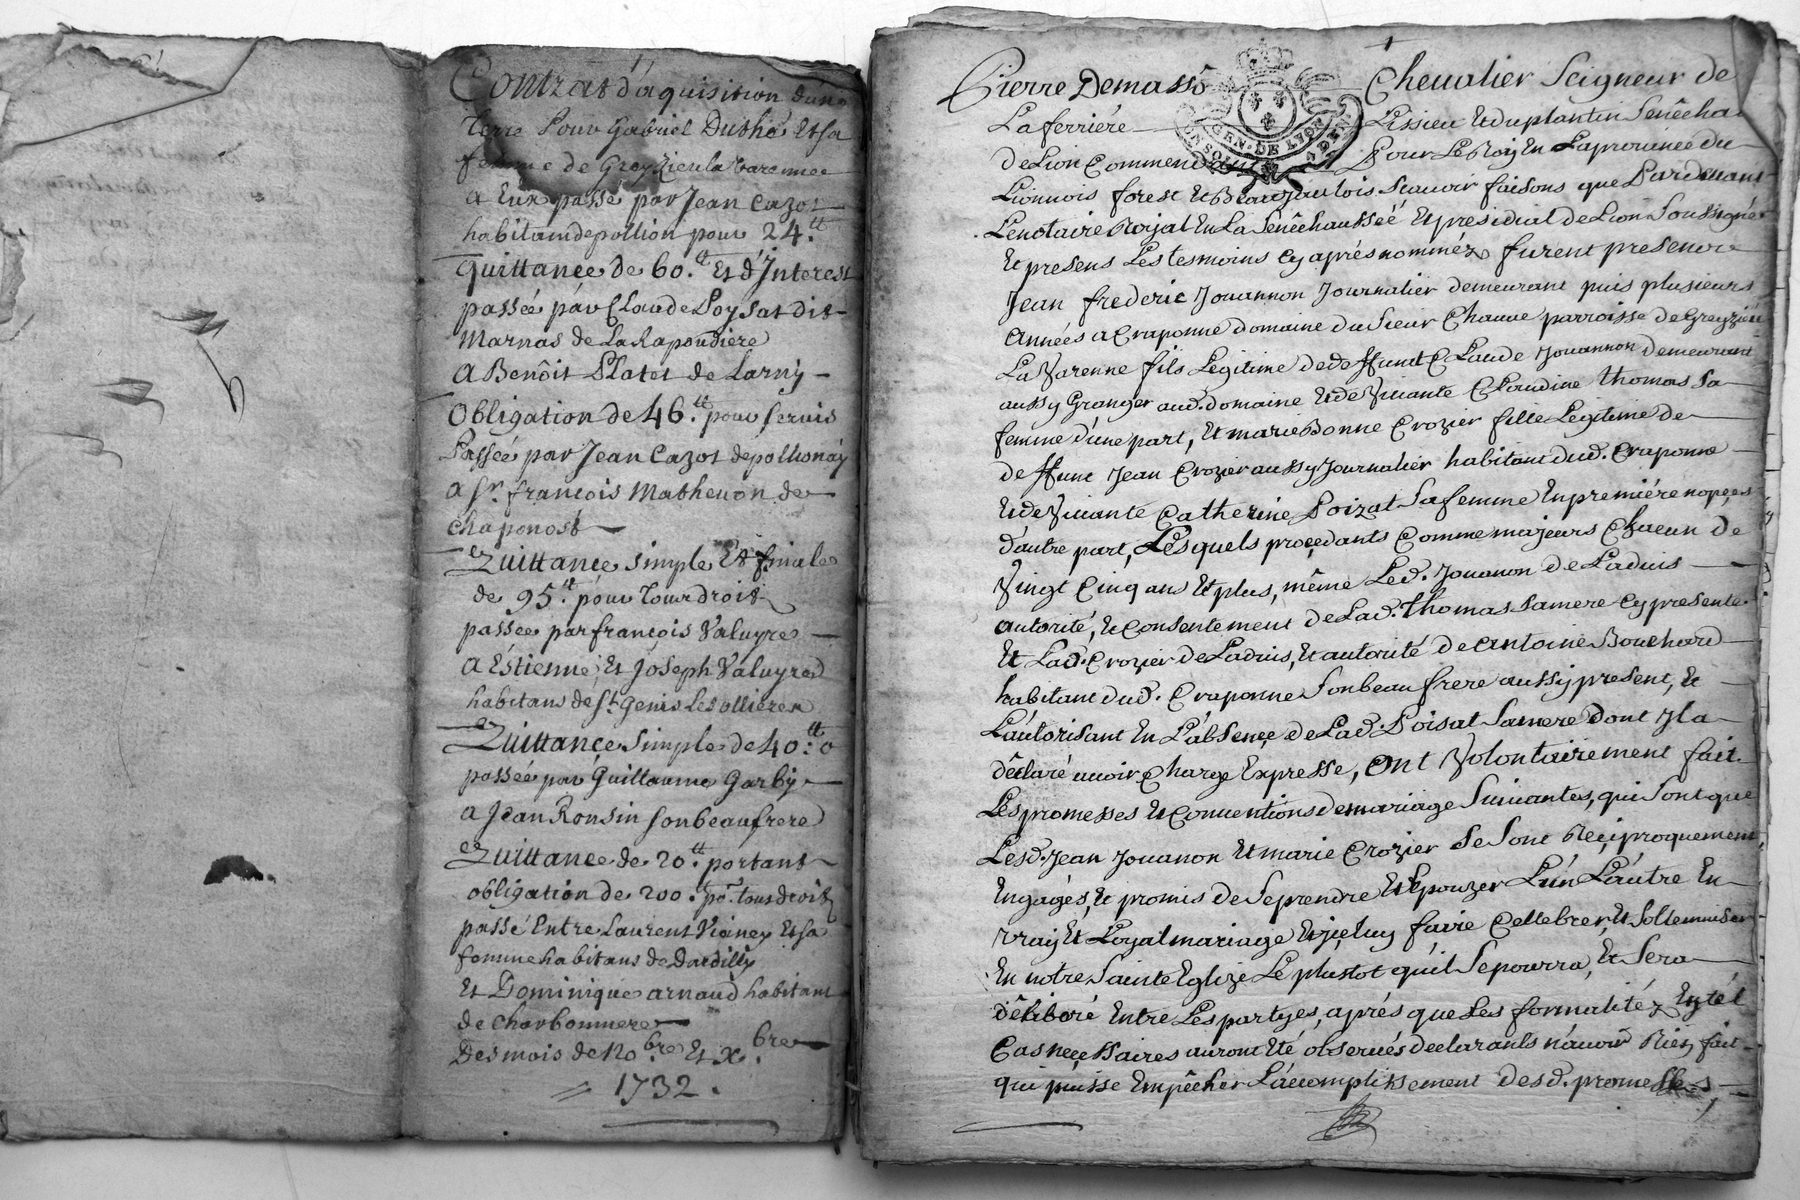 Contrat d'aquisition dune
terre Pour Gabriel Duthé Et sa
femme de Greyzieu la Varenne
a Eux passé par Jean Cazot
habitam de pollion pour 24.tt
quittance de 60.tt Et d'Interest
passée par Claude Poysat dit
Marnas de La Rapoudiere
a Benôit Platet de Larny
Obligation de 46.tt pour servis
Passée par Jean Cazot de pollionay
a Sr. francois Mathevon de
chaponost
Quittance simple Et finale
de 95.tt pour tour droit
passée par francois Valuyre
a Estienne Et Joseph Valuyre
habitans de St. Genis Les ollieres
Quittance simple de 40.tt
passée par Guillaume Garby
a Jean Ronsin son beau frere
Quittance de 20.tt portant
obligation de 200.tt pr. tous droit
passé Entre Laurent Vianey Et sa
femme habitans de Dardilly
Et Dominique arnaud habitant
de charbonnere
Des mois de No.bre Et X.bre
1732.
Pierre Demassô Chevalier Seigneur de
La ferriére Lissieu Et du plantin Senêchal
de Lion Commendant Pour Le Roy En La province du
Lionnois forest Et Beaujaulois Scavoir faisons que Pardevant
Le notaire Royal En La Senêchaussée Et presidial de Lion Soussigné
Et presens Les tesmoins Cy aprés nommés furent presents
Jean frederic Jouannon Journalier demeurant puis plusieurs
Années a Craponne domaine du Sieur Chauve parroisse de Greyzieu
La Varenne fils Legitime de deffunt Claude Jouannon demeurant
aussy Granger aud. domaine Et de Vivante Claudine Thomas sa
femme d'une part, Et marie Bonne Crozier fille Legitime de
deffunt Jean Crozier aussy Journalier habitant dud. Craponne
Et de Vivante Catherine Poizat Sa femme En premiére nopces
d'autre part, Lesquels proçedants Comme majeurs Chacun de
Vingt Cinq ans Et plus, même Led. Jouanon de L'advis
autorité, Et Consentement de Lad. Thomas Sa mere Cy presente
Et Lad. Crozier de L'advis, Et autorité de Antoine Bouchard
habitant dud. Craponne Son beau frere aussy present, Et
L'autorisant En L'absençe de Lad. Poisat Sa mere dont Il a
dêclaré avoir Charge Expresse, Ont Volontairement fait
Les promesses Et Conventions de mariage Suivantes, qui Sont que
Lesd. Jean Jouanon Et marie Crozier Se Sont Reçiproquement
Engagés, Et promis de Se prendre Et Epouzer L'un L'autre En
vray Et Loyal mariage Et içeluy faire Cellebrer, Et Sollemniser
En notre Sainte Eglize Le plustot qu'il Se pourra, Et Sera
dêliberé Entre Les partyes, aprés que Les formalitéz En tel
Cas neçessaires auront Eté observés declarants n'avoir Rien fait
qui puisse Empêcher L'accomplissement desd. promesses,